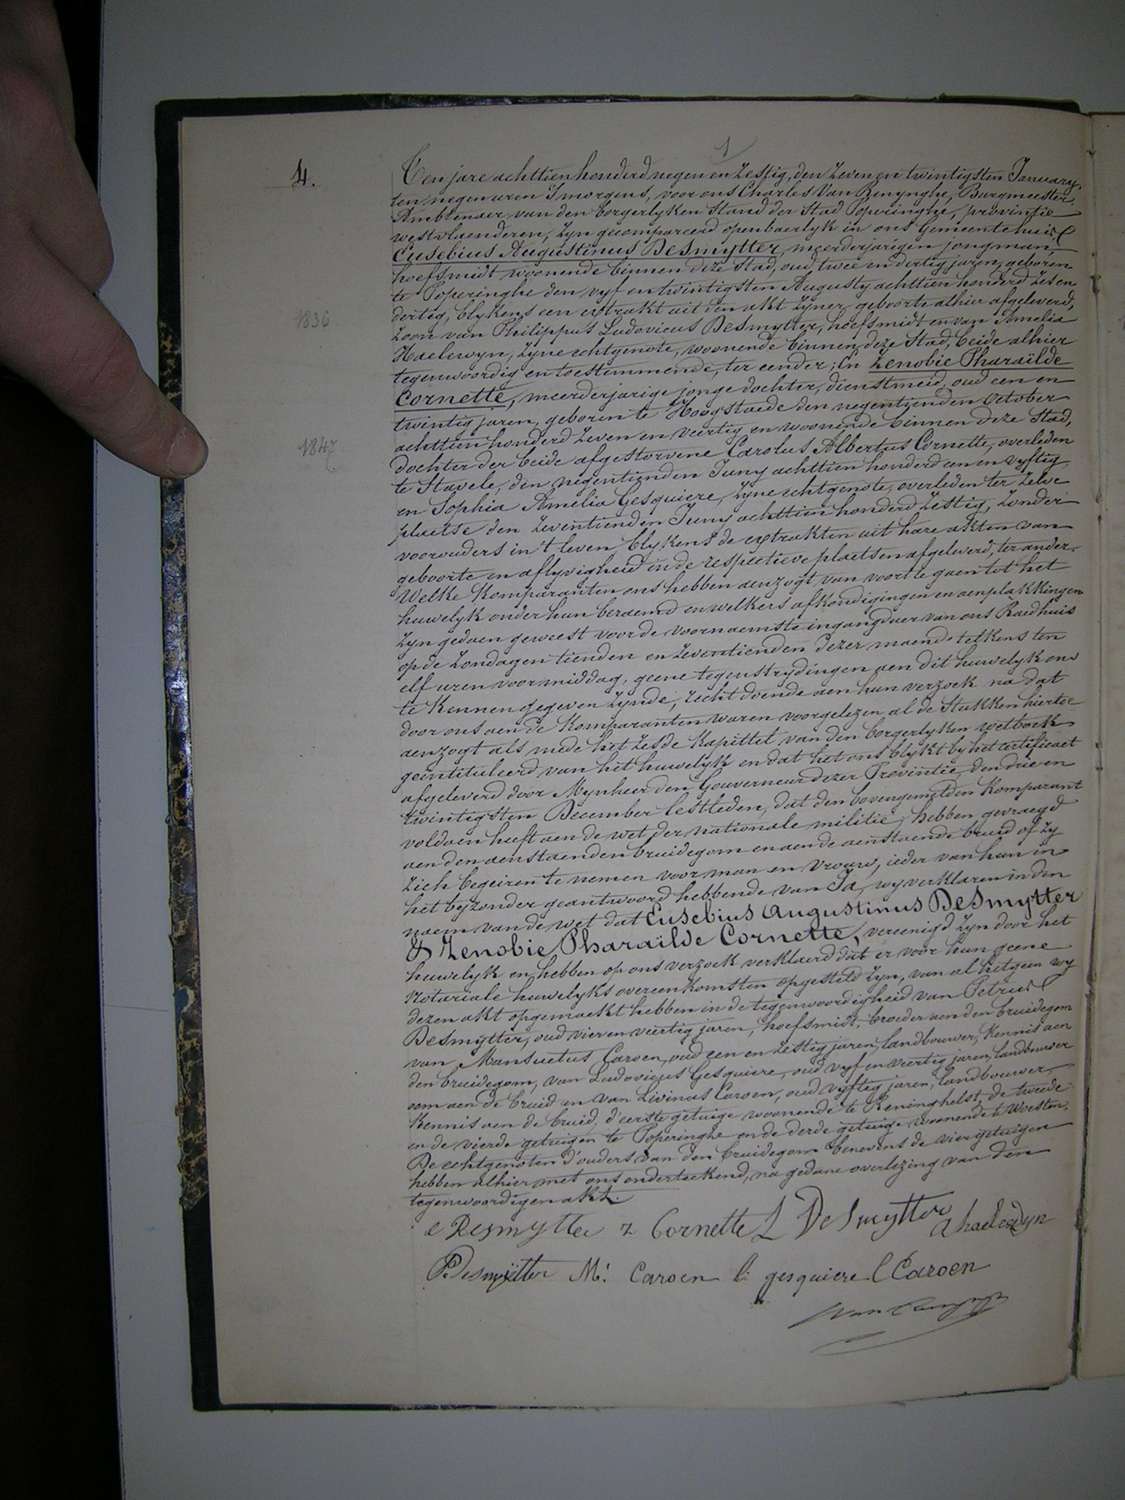 1
4.
Ten jare achttien honderd negen en Zestig, den Zeven en twintigsten January,
ten negen uren S'morgens, voor ons Charles Van Renynghe, Burgmeester,
Ambtenaer van den borgerlyken Stand der Stad Poperinghe, provintie
westvlaenderen, Zyn gecompareerd openbaerlyk in ons Gemeentehuis
Eusebius Augustinus DeSmytter, meerderjarigen jongman,
hoefsmidt woonende binnen deze Stad, oud twee en dertig jaren, geboren
te Poperinghe den vyf en twintigsten Augusty achttien honderd Zes en
1836
dertig, blykens een extrakt uit den akt Zyner geboorte alhier afgeleverd,
Zoon van Philippus Ludovicus DeSmytter, hoefsmidt en van Amelia
Haelewyn, Zyne echtgenote, woonende binnen deze Stad, beide alhier
tegenwoordig en toestemmende, ter eender; En Zenobie Pharaïlde
Cornette, meerderjarige jonge dochter, dienstmeid, oud een en
twintig jaren, geboren te Hoogstaede den negentienden October
1847
achttien honderd Zeven en veertig en woonende binnen deze Stad,
dochter der beide afgestorvene Carolus Albertus Cornette, overleden
te Stavele, den negentienden Juny achttien honderd een en vyftig
en Sophia Amelia Gesquiere, Zyne echtgenote, overleden ter Zelve
plaetse den Zeventienden Juny achttien honderd Zestig, Zonder
voorouders in 't leven, blykens de extrakten uit hare akten van
geboorte en aflyvigheid in de respectieve plaetsen afgeleverd, ter ander.
Welke komparanten ons hebben aenzogt, van voort te gaen tot het
huwelyk onder hun beraemd en welkers afkondigingen en aenplakkingen
Zyn gedaen geweest voor de voornaemste ingangdeur van ons Raedhuis
op de Zondagen tienden en Zeventienden dezer maend telkens ten
elf uren voormiddag, geene tegenstrydingen aen dit huwelyk ons
te kennen gegeven Zynde, recht doende aen hun verzoek na dat
door ons aen de komparanten waren voorgelezen al de Stukken hiertoe
aenzogt als mede het Zesde kapittel van den borgerlyken wetboek
geïntituleerd van het huwelyk en dat het ons blykt by het certificaet
afgeleverd door Mynheer den Gouverneur dezer Provintie, den drie en
twintigsten December lestleden, dat den bovengemelden komparant
voldaen heeft aen de wet der nationale militie, hebben gevraegd
aen den aenstaenden bruidegom en aen de aenstaende bruid of Zy
Zich begeiren te nemen voor man en vrouw, ieder van hun in
het byzonder geantwoord hebbende van Ja, wy verklaren in den
naem van de wet dat Eusebius Augustinus DeSmytter
& Zenobie Pharaïlde Cornette, vereenigd Zyn door het
huwelyk en hebben op ons verzoek verklaerd dat er voor hun geene
Notariale huwelyks overeenkomsten opgesteld Zyn, van al hetgeen wy
dezen akt opgemaekt hebben in de tegenwoordigheid van Petrus
DeSmytter, oud vier en veertig jaren, hoefsmidt, broeder aen den bruidegom
van Mansuetus Caroen, oud een en Zestig jaren, landbouwer, kennis aen
den bruidegom, van Ludovicus Gesquiere, oud vyf en veertig jaren, landbouwer
oom aen de bruid en van Livinus Caroen, oud vyftig jaren, landbouwer,
kennis aen de bruid, d'eerste getuige woonende te Reninghelst, de tweede
en de vierde getuigen te Poperinghe en de derde getuige woonende te Woesten.
De echtgenoten d'ouders van den bruidegom benevens de vier getuigen
hebben alhier met ons onderteekend, na gedane overlezing van den
tegenwoordigen akt.
e Desmytter z Cornette L DeSmytter A haelewyn
P. Desmÿtter M. Caroen L. gesquiere L Caroen